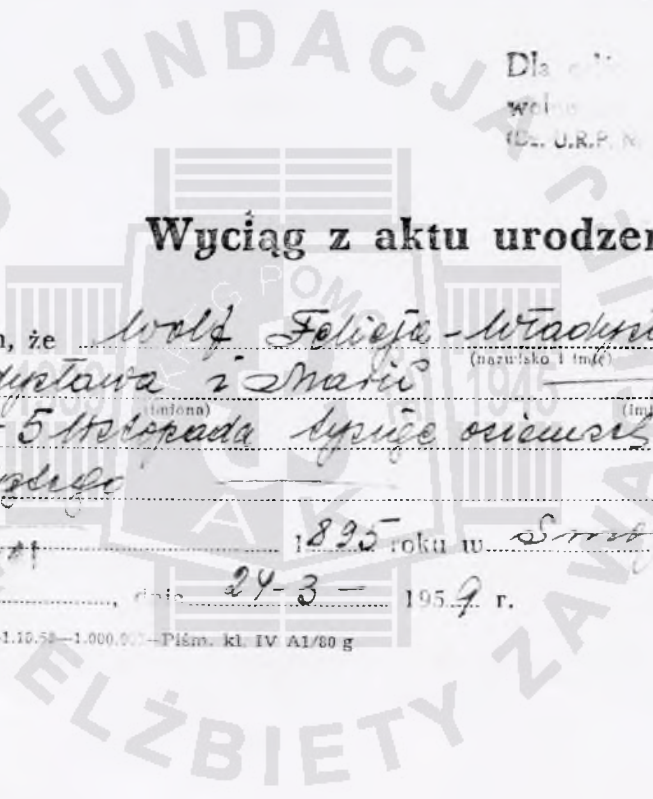 FUNDACJA
Dla
(Dz. U.R.P. N
Wyciąg z aktu urodzen
, że Wolf Felicja-Władysł
(nazwisko i imię)
dysława i Marii
(imiona) (imi
5 listopada tysiąc osiemset
ątego
1895 roku w Smog
, dnia 24-3- 1959 r.
1.10.58—1.000.000—Piśm. kl. IV A1/80 g
POMO
1945
AK
ELŻBIETY ZAWA